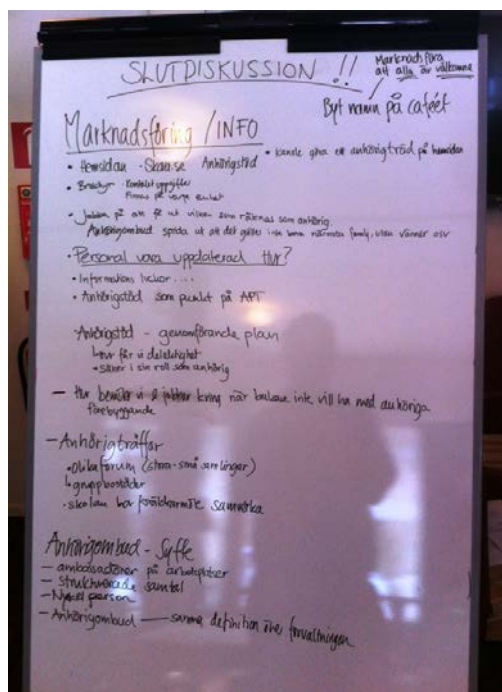 SLUTDISKUSSION !!
Marknadsföra
att alla är välkomna
Byt namn på caféet
Marknadsföring / INFO
• Hemsidan - Skara.se Anhörigstöd
• Kanske göra ett anhörigträd på hemsidan
• Broschyr - Kontaktuppgifter
Finnas på varje enhet
• Jobba på att få ut vilka som räknas som anhörig.
Anhörigombud sprida ut att det gäller inte bara närmsta familj, utan vänner osv
• Personal vara uppdaterad Hur?
• Informations luckor ....
• Anhörigstöd som punkt på APT
• Anhörigstöd - genomförande plan
Hur får vi delaktighet
• Säker i sin roll som anhörig
- Hur vi jobbar kring när brukare inte vill ha med anhöriga
förebyggande
- Anhörigträffar
• Olika forum (stora - små samlingar)
gruppbostäder
• skolan har föräldramöte samverka
Anhörigombud - Syfte
- ambassadörer på arbetsplatser
- strukturerade samtal
- Nyckelperson
- Anhörigombud — samma definition över förvaltningen